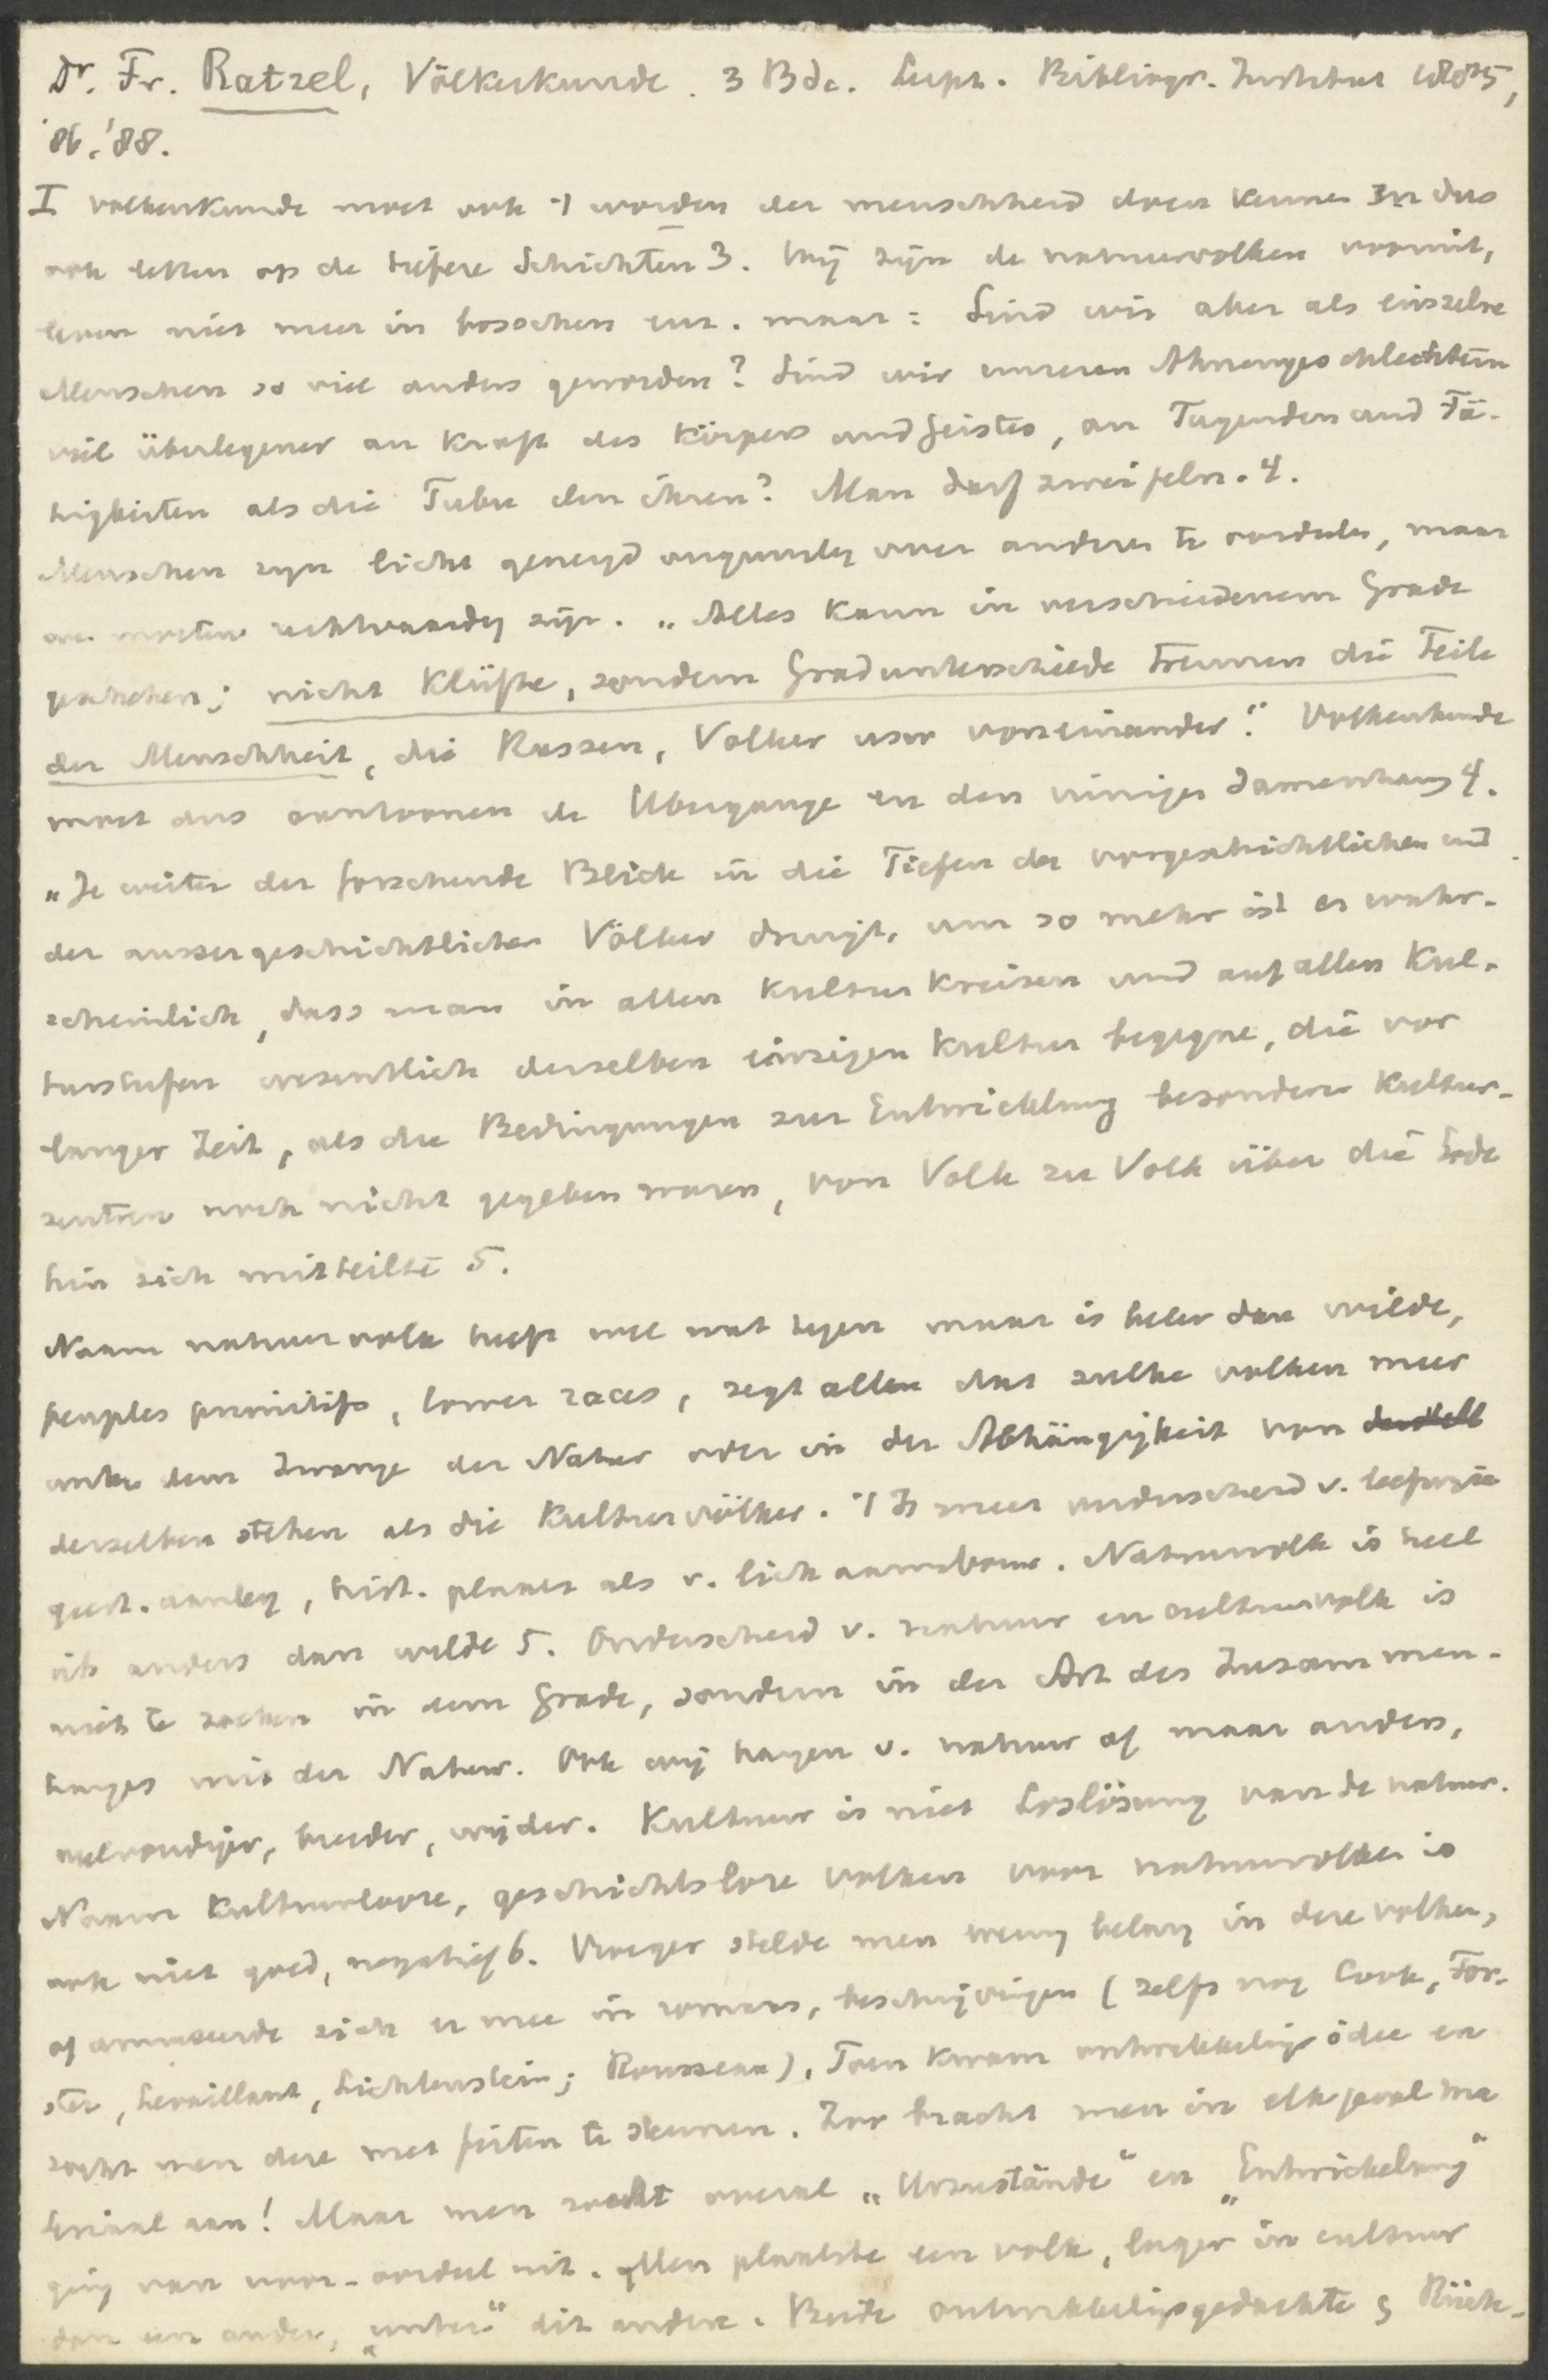 Dr. Fr. Ratzel, Völkerkunde. 3 Bde. Leipz. Bibliogr. Institut 1885,
'86, '88.
I volkenkunde moet ook worden der menschheid doen kennen en dus
ook letten op de tiefere Schichten 3. Wij zijn de natuurvolken vooruit,
leven niet meer in bosschen enz. maar: Sind wir aber als einzelne
Menschen so viel anders geworden? Sind wir unseren Ahnengeschlechtern
viel überlegener an Kraft des Körpers und Geistes, an Tugenden und Fä-
higkeiten als die Tubu den ihren? Man darf zweifeln. 4.
Menschen zijn licht geneigd ongunstig over anderen te oordeelen, maar
we moeten rechtvaardig zijn. „Alles kann in verschiedenem Grade
geschehen; nicht Klüfte, sondern Gradunterschiede trennen die Teile
der Menschheit, die Rassen, Völker usw voneinander." Volkenkunde
moet dus aantoonen de Übergange en den innigen Samenhang 4.
„Je weiter der forschende Blick in die Tiefen der vorgeschichtlichen und
der aussergeschichtlichen Völker dringt, um so mehr ist es wahr-
scheinlich, dass man in allen Kulturkreisen und auf allen Kul-
turstufen wesentlich derselben einzigen Kultur begegne, die vor
langer Zeit, als die Bedingungen zur Entwicklung besonderer Kultur-
zentren noch nicht gegeben waren, von Volk zu Volk über die Erde
hin sich mitteilte 5.
Naam natuurvolk heeft wel wat tegen maar is beter dan wilde,
peuples primitifs, lower races, zegt alleen dat zulke volken meer
unter dem Zwange der Natur oder in der Abhängigkeit von
derselben stehen als die Kulturvölker. Is meer onderscheid v. leefwijze
geest. aanleg, hist. plaats als v. lichaamsbouw. Natuurvolk is heel
iets anders dan wilde 5. Onderscheid v. natuur en cultuurvolk is
niet te zoeken in dem Grade, sondern in der Art des Zusammen-
hanges mit der Natur. Ook wij hangen v. natuur af maar anders,
veelvoudiger, breeder, wijder. Kultuur is niet Loslösung van de natuur.
Naam Kultuurlooze, geschichtslose volken voor natuurvolken is
ook niet goed, negatief 6. Vroeger stelde men weinig belang in deze volken,
of amuseerde zich er mee in romans, beschrijvingen (zelfs nog Cook, For-
ster, Levaillant, Lichtenstein; Rousseau). Toen kwam ontwikkelingsidee en
zocht men deze met feiten te steunen. Zoo bracht men in elk geval ma
teriaal aan! Maar men zocht overal „Urzustände" en „Entwickelung"
ging van voor-oordeel uit. Men plaatste een volk, lager in cultuur
dan een ander, „unter" dit andere. Beide ontwikkelingsgedachte & Rück-